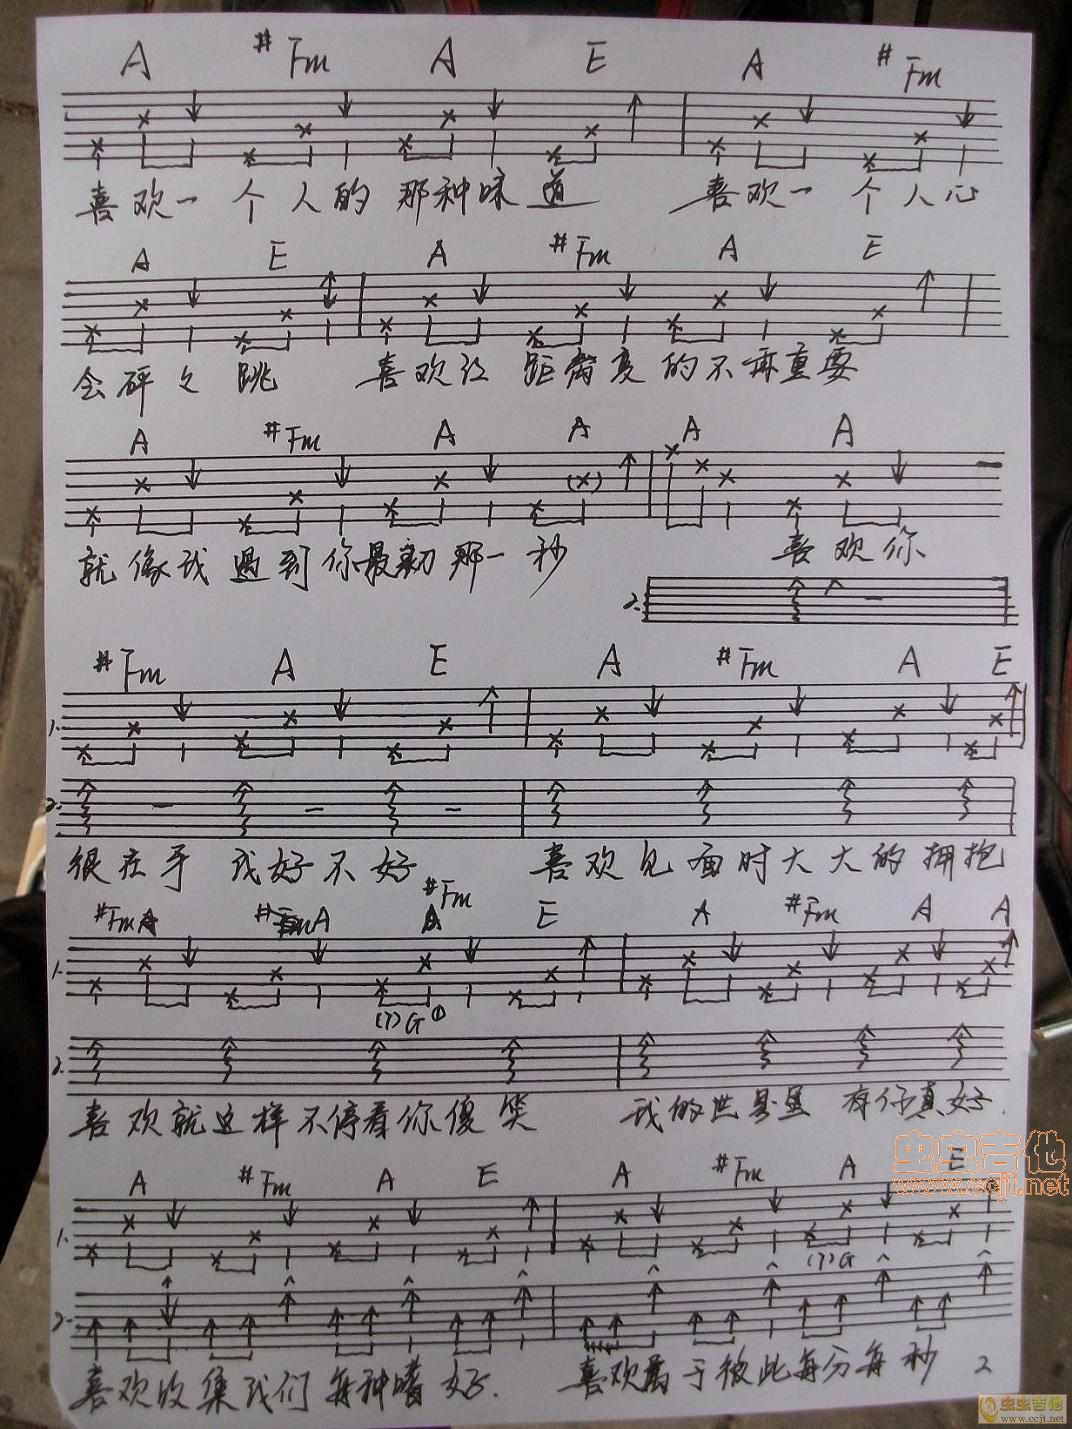 A #Fm A E A #Fm
喜欢一个人的那种味道 喜欢一个人心
A E A #Fm A E
会砰 跳 喜欢 距离 的不再重要
A #Fm A A A A
就像我遇到你最初那一秒 喜欢你
2.
#Fm A E A #Fm A E
1.
2.
很在乎我好不好 喜欢见面时大大的拥抱
#Fm #Fm A E A #Fm A A
1.
(7)G①
2.
喜欢就这样不停看你傻笑 我的世界里有你真好.
A #Fm A E A #Fm A E
1.
(7)G
2.
喜欢收集我们每种嗜好. 喜欢属于彼此每分每秒 2
虫虫吉他
www.ccjt.net
虫虫吉他
www.ccjt.net